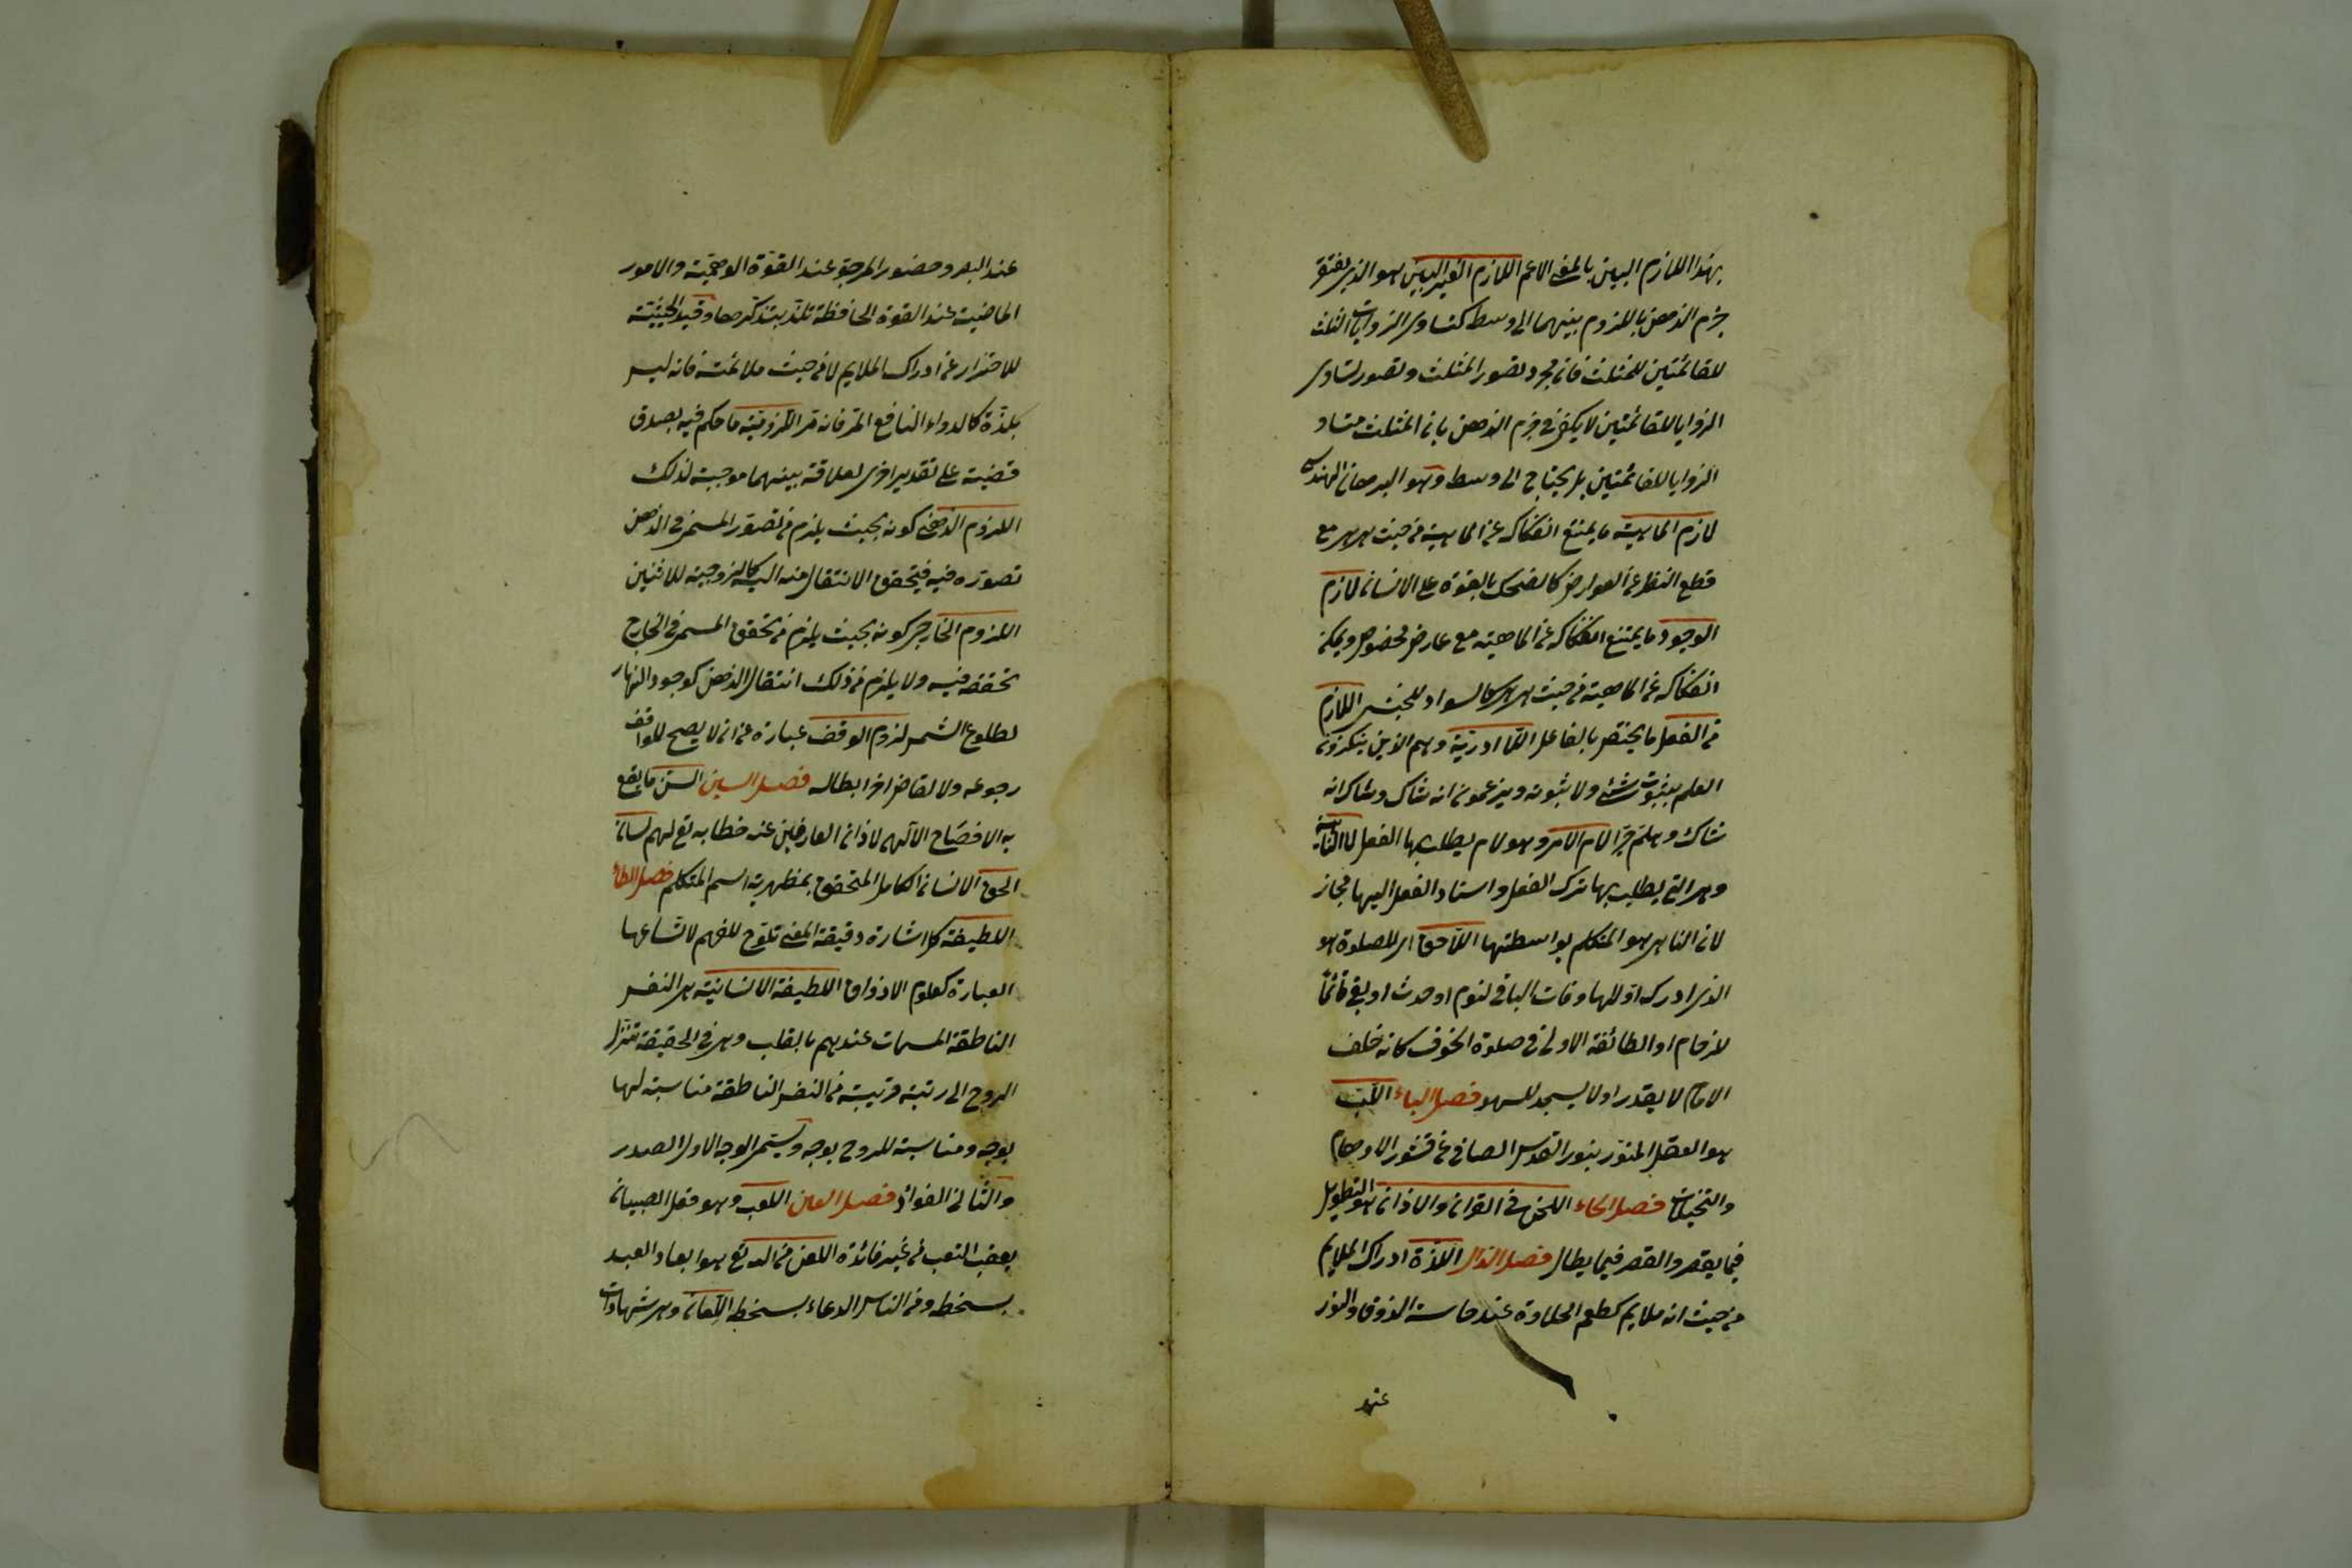 بهذا اللازم البين بالمعنى الاعم اللازم الغير البين هو الذى يفتقر
جزم الذهن باللزوم بينهما الى وسط كتساوى الزوايات الثلث
للقائمتين للمثلث فان مجرد تصور المثلث وتصور تساوى
الزوايا للقائمتين لا يكفى فى جزم الذهن بان المثلث متساو
الزوايا للقائمتين بل يحتاج الى وسط وهو البرهان الهندسى
لازم الماهية ما يمتنع انفكاكه عن الماهية من حيث هى هى مع
قطع النظر عن العوارض كالضحك بالقوة على الانسان لازم
الوجود ما يمتنع انفكاكه عن الماهية مع عارض مخصوص ويمكن
انفكاكه عن الماهية من حيث هى هى كالسواد للحبشى اللازم
من الفعل ما يختص بالفاعل اللا ادرية وهم الذين ينكرون
العلم بثبوت شئ ولا ثبوته ويزعمون انه شاك وشاك انه
شاك وهلم جرا لام الامر وهو لام يطلب بها الفعل لا الناهية
وهى التى يطلب بها ترك الفعل واسناد الفعل اليها مجاز
لان الناهى هو المتكلم بواسطتها اللاحق اى للصلوة هو
الذى ادرك اولها وفات الباقى لنوم او حدث او بقى قائما
لازحام او الطائفة الاولى فى صلوة الخوف كانه خلف
الامام لا يقدر او لا يسجد للسهو فصل الباء اللب
هو العقل المنور بنور القدس الصافى عن قشور الاوهام
والتخيلات فصل الحاء اللحن فى القران والاذان هو التطويل
فيما يقصر والقصر فيما يطال فصل الذال اللذة ادراك الملايم
من حيث انه ملايم كطعم الحلاوة عند حاسة الذوق والنور
عند
عند البصر وحضور المرجو عند القوة الوهمية والامور
الماضية عند القوة الحافظة تلتذ بتذكرها وقيد الحيثية
للاحتراز عن ادراك الملايم لا من حيث ملائمته فانه ليس
بلذة كالدواء النافع المر فانه مر اللزومية ما حكم فيه بصدق
قضية على تقدير اخرى لعلاقة بينهما موجبة لذلك
اللزوم الذهنى كونه بحيث يلزم من تصور المسمى فى الذهن
تصوره فيه فيتحقق الانتقال منه اليه كالزوجية للاثنين
اللزوم الخارجى كونه بحيث يلزم من تحقق المسمى فى الخارج
تحققه فيه ولا يلزم من ذلك انتقال الذهن كوجود النهار
لطلوع الشمس لزوم الوقف عبارة عن ان لا يصح للواقف
رجوعه ولا لقاض اخر ابطاله فصل السين اللسن ما يقع
به الافصاح الالهى لاذان العارفين عند خطابه تع لهم لسان
الحق الانسان الكامل المتحقق بمظهرية اسم المتكلم فصل الطاء
اللطيفة كل اشارة دقيقة المعنى تلوح للفهم لا تسعها
العبارة كعلوم الاذواق اللطيفة الانسانية هى النفس
الناطقة المسمات عندهم بالقلب وهى فى الحقيقة تنزل
الروح الى رتبة قريبة من النفس الناطقة مناسبة لها
بوجه ومناسبة للروح بوجه ويسمى الوجه الاول الصدر
والثانى الفواد فصل العين اللعب وهو فعل الصبيان
يعقب التعب من غير فائدة اللعن من الله تع هو ابعاد العبد
بسخطه ومن الناس الدعاء بسخطه اللعان وهى شهادات